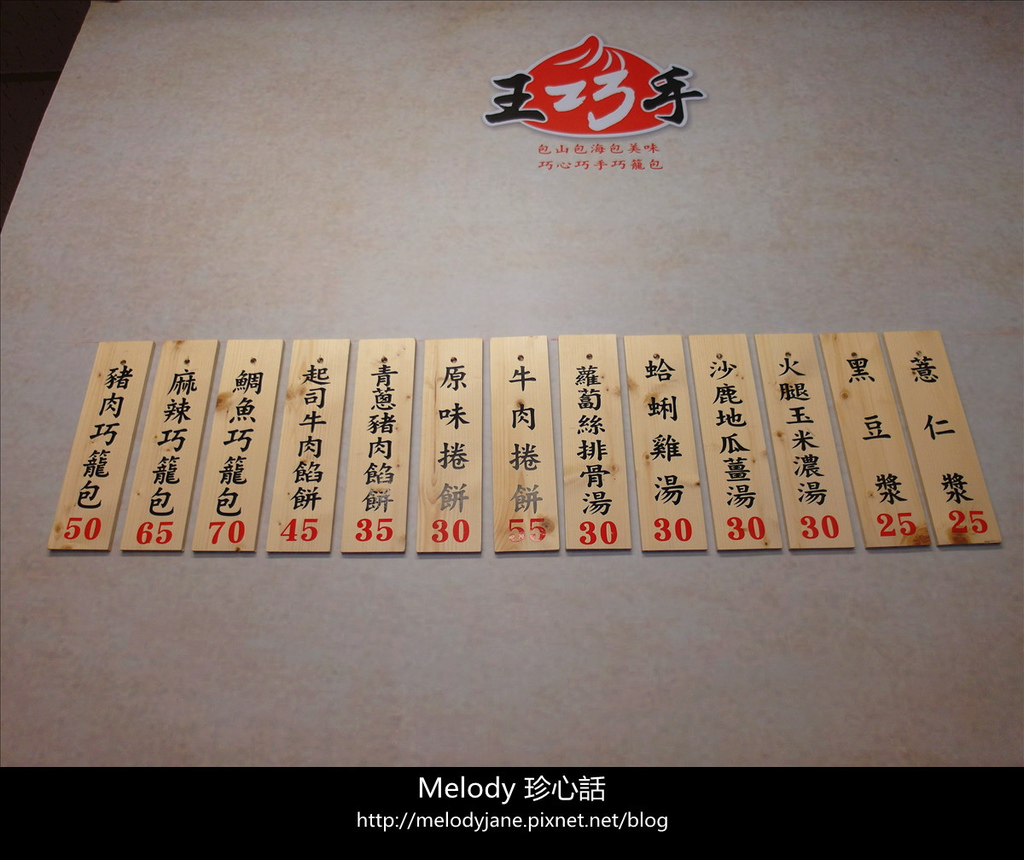 王巧手
包山包海包美味
巧心巧手巧籠包
豬肉巧籠包
50
麻辣巧籠包
65
鯛魚巧籠包
70
起司牛肉餡餅
45
青蔥豬肉餡餅
35
原味捲餅
30
牛肉捲餅
55
蘿蔔絲排骨湯
30
蛤蜊雞湯
30
沙鹿地瓜薑湯
30
火腿玉米濃湯
30
黑豆漿
25
薏仁漿
25
Melody 珍心話
http://melodyjane.pixnet.net/blog